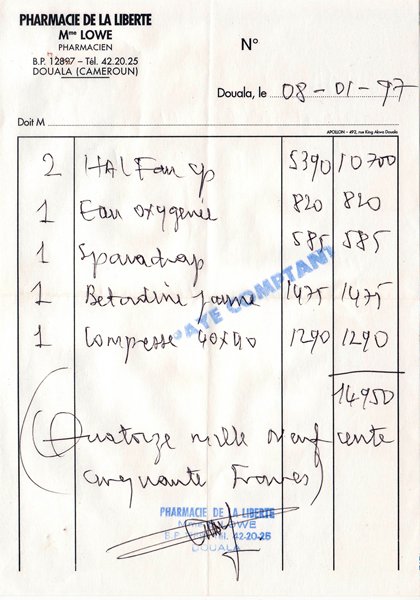 PHARMACIE DE LA LIBERTE
Mme LOWE
PHARMACIEN
B.P. 12897 - Tél. 42.20.25
DOUALA (CAMEROUN)
N°
Douala, le 08-01-97
Doit M
APOLLON - 492, rue King Akwa Douala
2 HALFan cp 5390 10700
1 Eau oxygenée 820 820
1 Sparadrap 585 585
1 Betadine jaune 1475 1475
1 Compresse 40x40 1290 1290
PAYE COMPTANT
14950
(Quatorze mille neuf cents
cinquante Francs)
PHARMACIE DE LA LIBERTE
Mme LOWE
B.P. Tél. 42-20-25
DOUALA